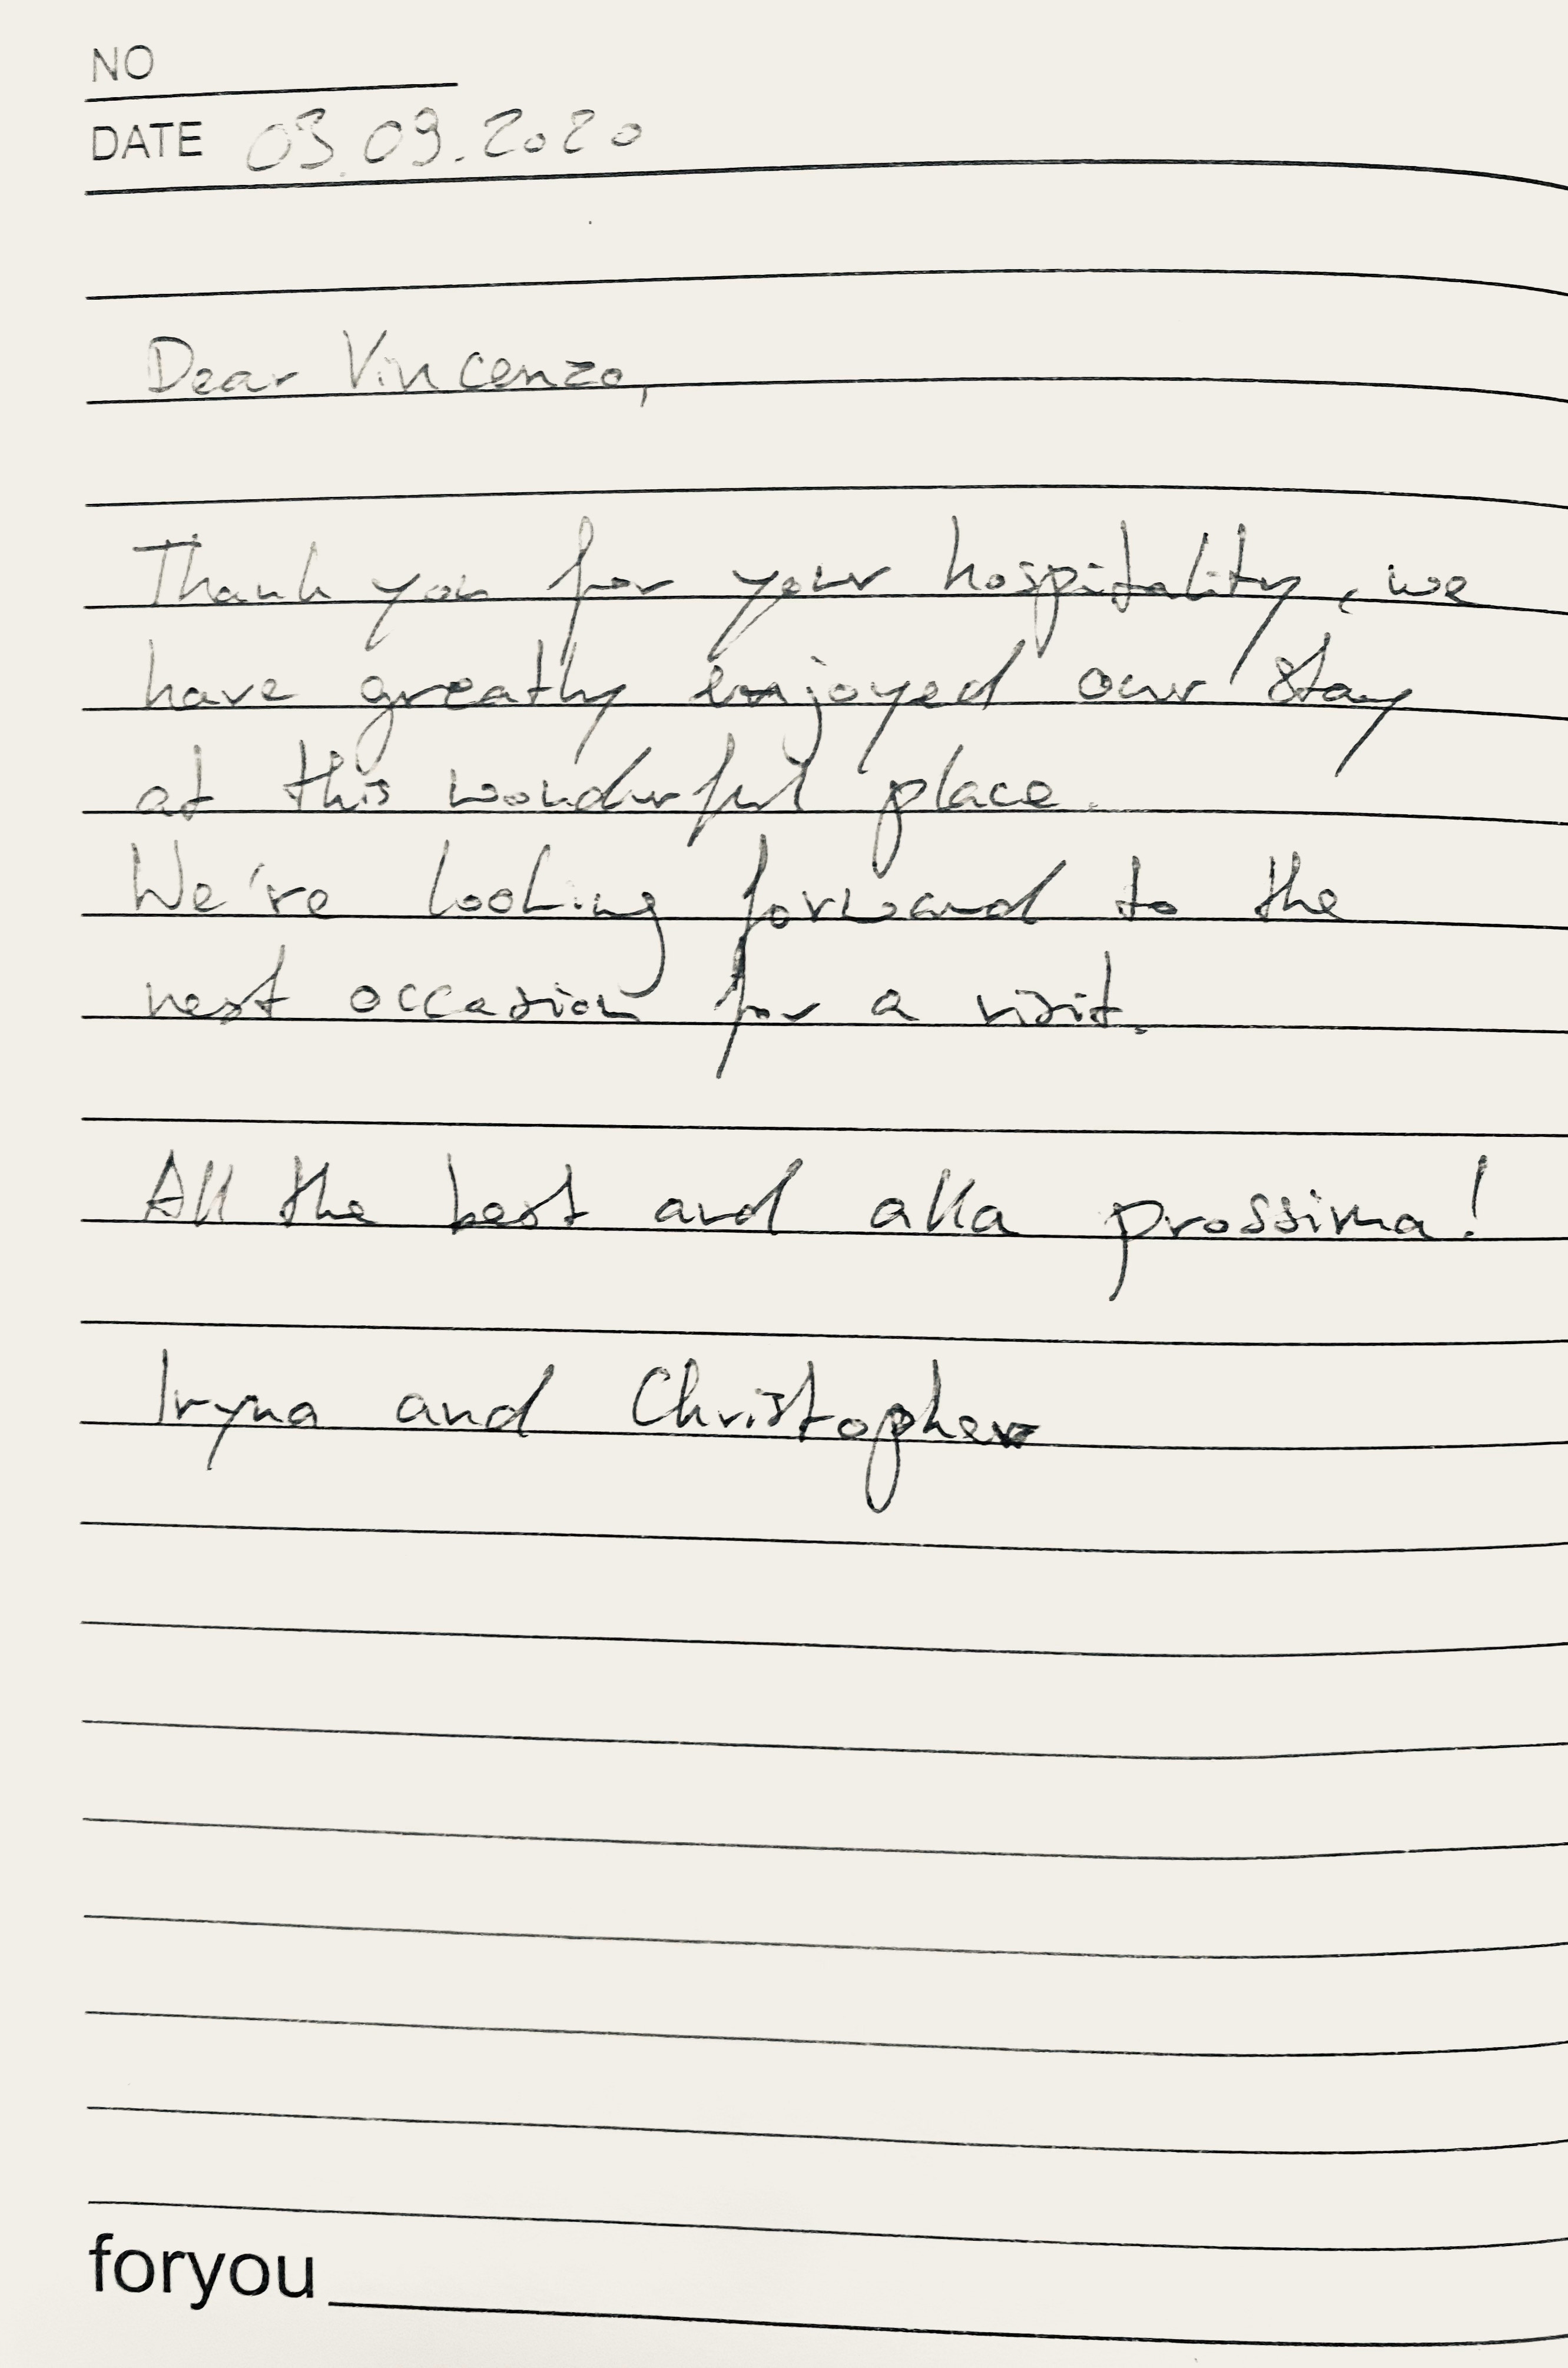 NO
DATE 03.09.2020
Dear Vincenzo,
Thank you for your hospitality, we
have greatly enjoyed our stay
at this wonderful place.
We're looking forward to the
next occasion for a visit.
All the best and alla prossima!
Iryna and Christopher
foryou